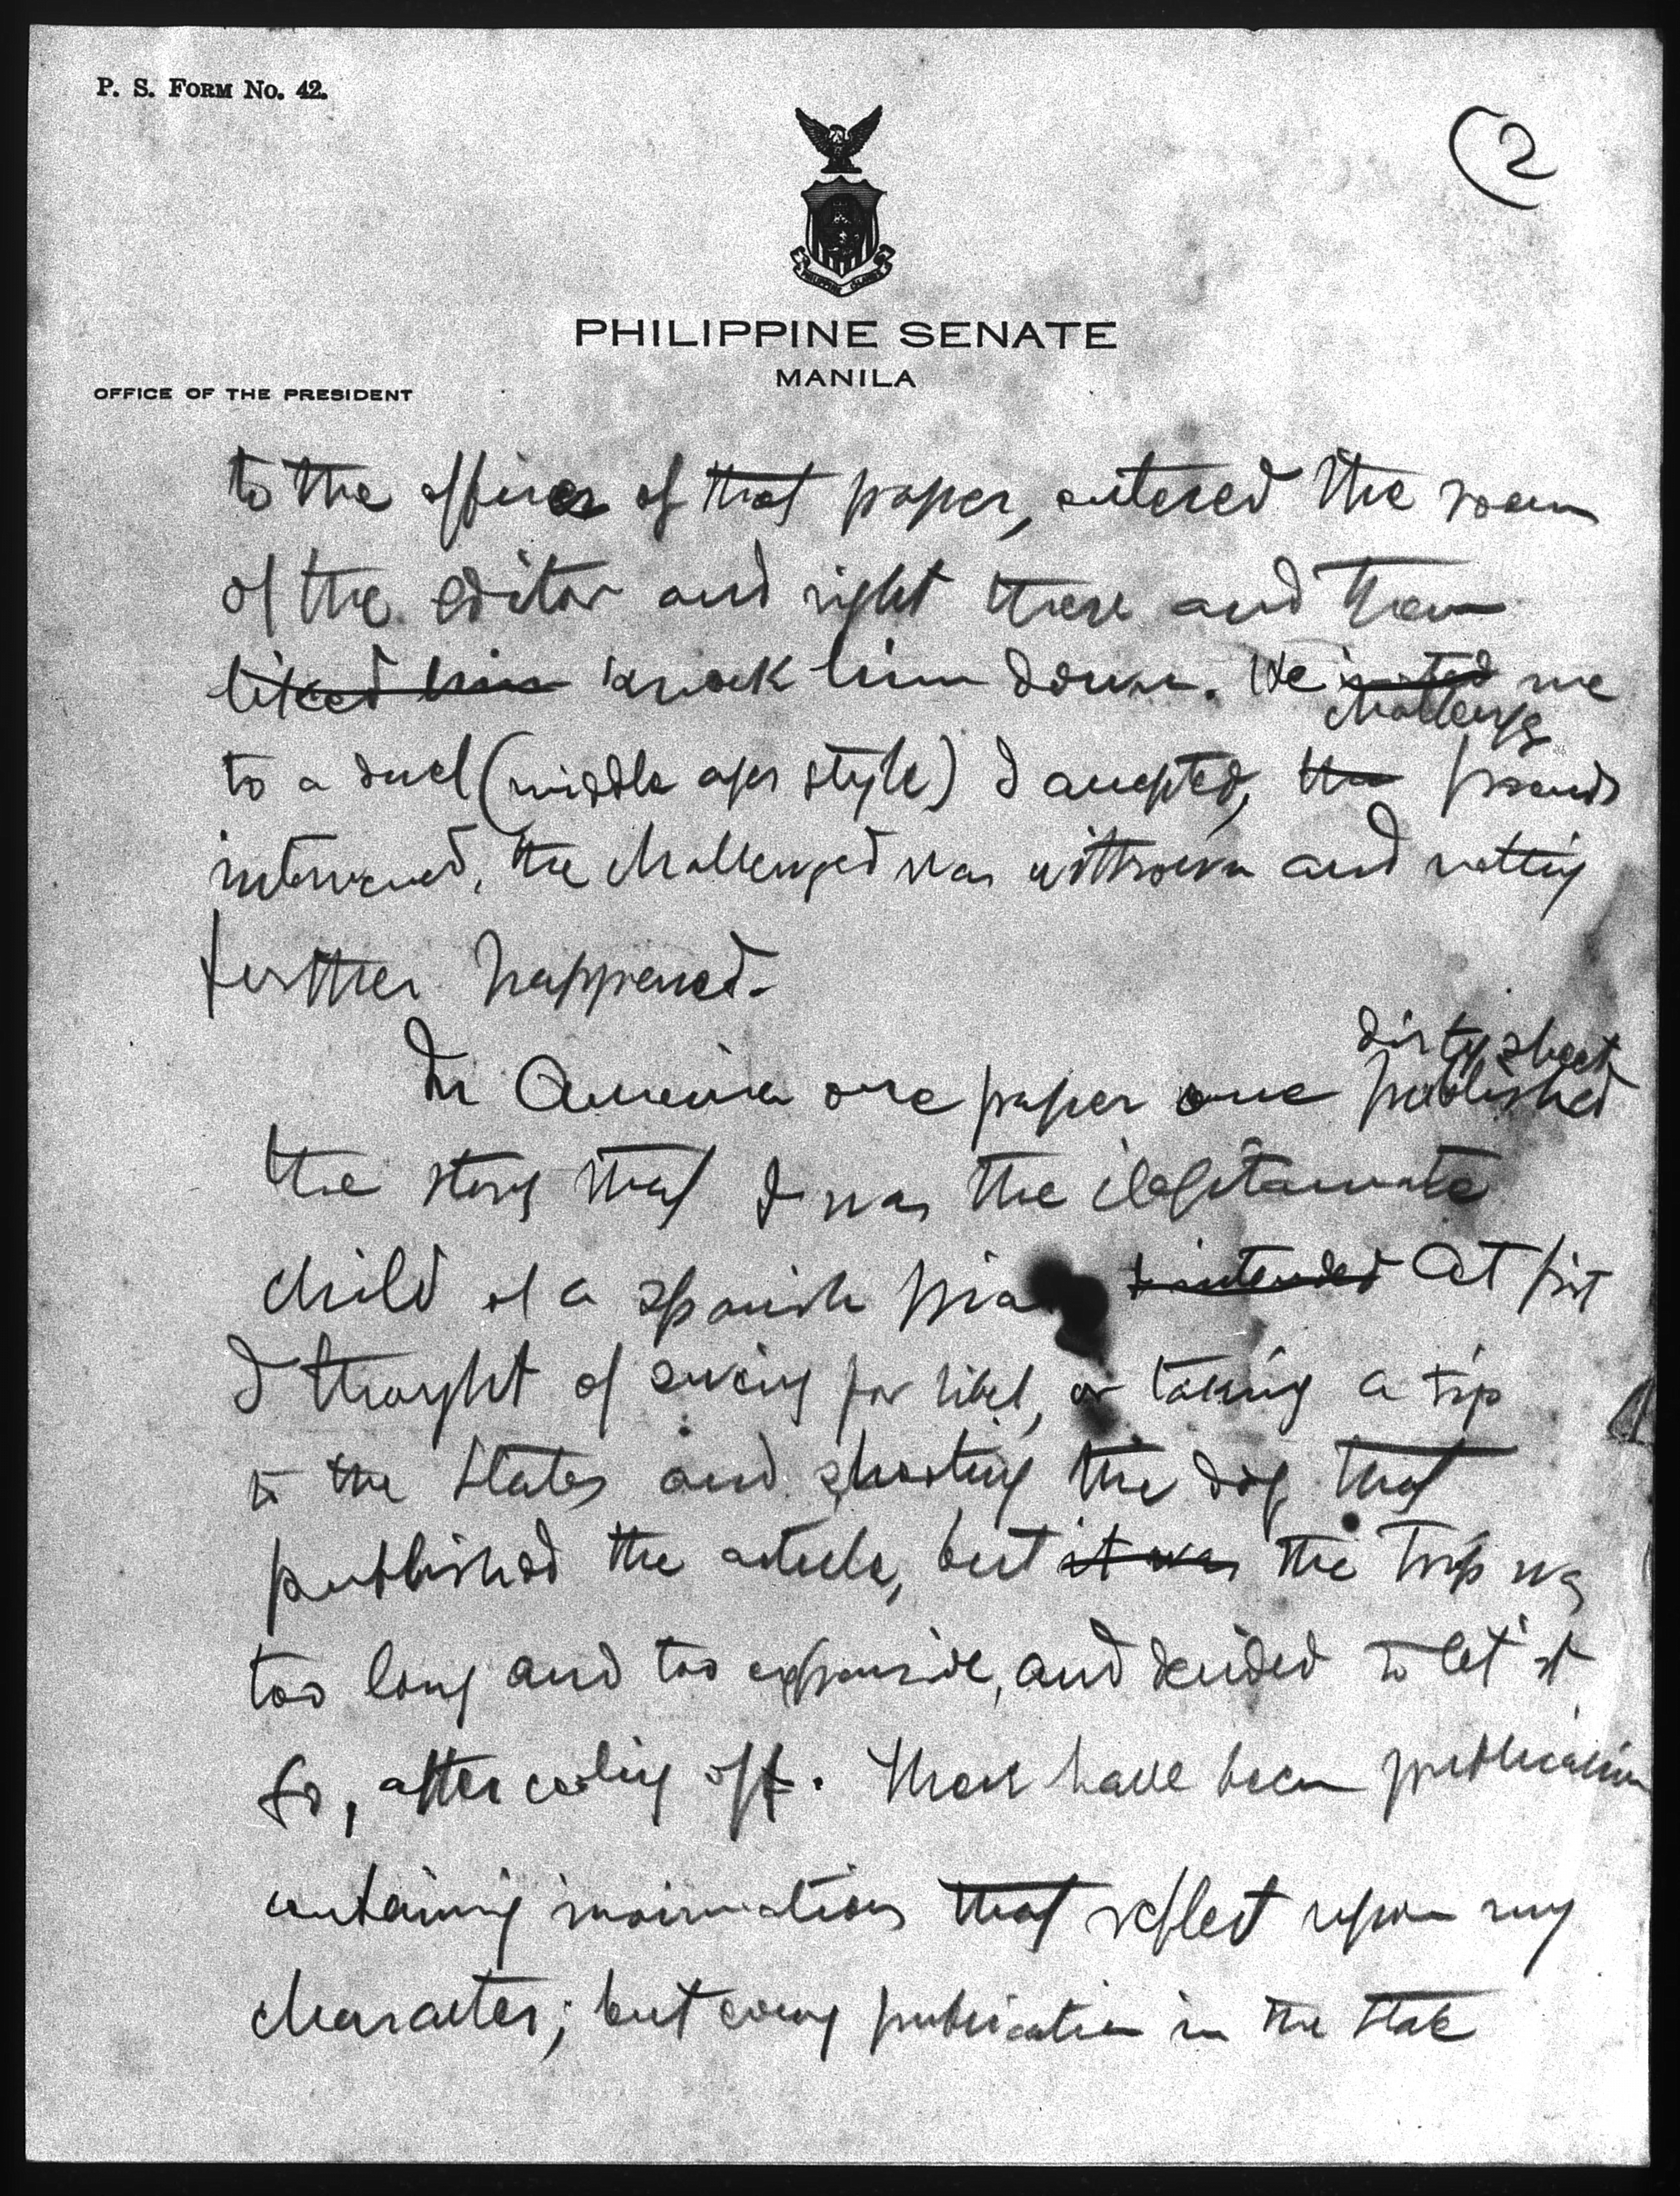 P. S. FORM No. 42.
(2
PHILIPPINE SENATE
MANILA
OFFICE OF THE PRESIDENT
to the offices of that paper, entered the room
of the editor and right there and then
liked him knock him down. He invited me
challenge
to a duel (middle ages style) I accepted, the friends
intervened, the challenged was withdrawn and nothing
further happened.
dirty sheet
In America one paper one published
the story that I was the ilegitamate
child of a spanish I intended At first
I thought of sueing for libel, or taking a trip
to the States and shooting the dog that
published the article, but it was the trip was
too long and too expensive, and decided to let it
go, after cooling off. There have been publication
containing insinuations that reflect upon my
character; but every publication in the State